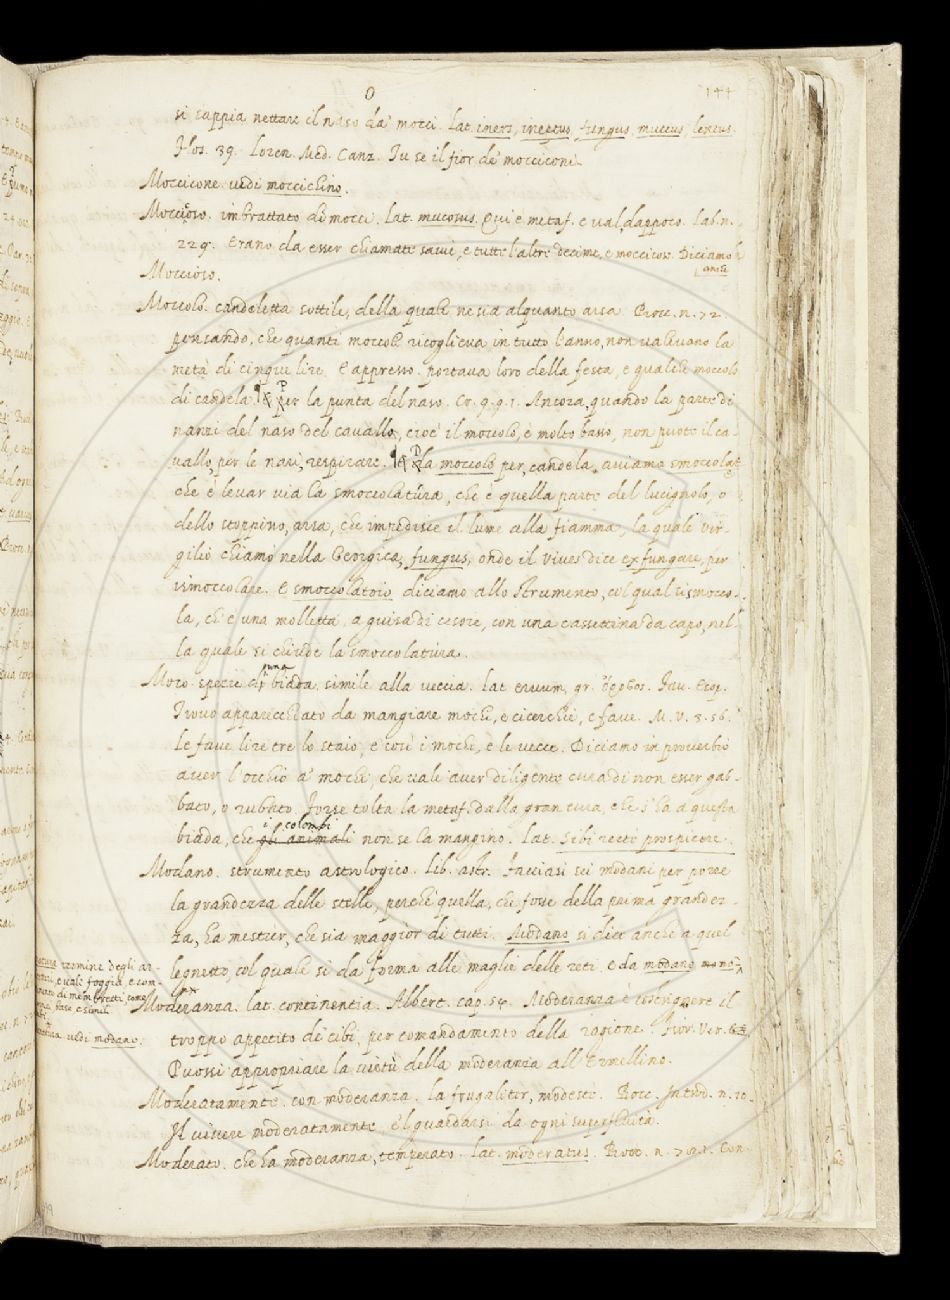 O
144
si sappia nettare il naso da' mocci. Lat. iners, ineptus, fungus, muccus, lentus.
Flos. 39. Loren. Med. Canz. Tu se il fior de' mocciconi.
Moccicone. vedi moccichino.
Moccioso. imbrattato di mocci. Lat. mucosus. Qui è metaf. e val, dappoco. Lab. n.
229. Erano da esser chiamate savie, e tutte l'altre decime, e moccicose. Diciamo
anche
Moccioso.
Moccolo. candeletta sottile, della quale ne sia alquanto arsa. Bocc. n. 72.
pensando, che quanti moccoli ricoglieva in tutto l'anno, non valevano la
metà di cinque lire. E appresso. portava loro della festa, e qualche moccolo
di candela. ¶ Per la punta del naso. Cr. 9. 9. 1. Ancora, quando la parte di
nanzi del naso del cavallo, cioè il moccolo, è molto basso, non puote il ca-
vallo, per le nari, respirare. ¶ Da moccolo per, candela, aviamo smoccolare
che è levar via la smoccolatura, che è quella parte del lucignolo, o
dello stoppino, arsa, che impedisce il lume alla fiamma, la quale Vir-
gilio chiamò nella Georgica, fungus, onde il Vives dice exfungare, per
ismoccolare. E smoccolatoio diciamo allo strumento, col qual si smocco-
la, ch'è una molletta, a guisa di cesoie, con una cassettina da capo, nel-
la quale si chiude la smoccolatura.
Moco. spezie d' una biada, simile alla veccia. Lat. ervum, gr. ὄροβος. Fav. Esop.
Trovò apparecchiato da mangiare mochi, e cicerchie, e fave. M. V. 3. 56.
Le fave lire tre lo staio, e così i mochi, e le vecce. Diciamo in proverbio
aver l'occhio a' mochi, che vale aver diligente cura di non esser gab-
bato, o rubato. Forse tolta la metaf. dalla gran cura, che s'ha a questa
biada, che gli animali i colombi non se la mangino. Lat. Sibi recti prospicere.
Modano. strumento astrologico. Lib. astr. Facciasi sei modani per porre
la grandezza delle stelle, perchè quella, che fosse della prima grandez-
za, ha mestier, che sia maggior di tutti. Modano si dice anche a quel
legnetto, col quale si dà forma alle maglie delle reti. e da modano
termine degli ar-
e vale foggia, e com-
di membretti, come
base e simili
vedi modano.
Moderanza. lat. continentia. Albert. cap. 54. Moderanza è costrignere il
troppo appetito de' cibi, per comandamento della ragione. Fior. Ver.
Puossi appropriare la virtù della moderanza all'Ermellino.
Moderatamente. con moderanza. la. frugaliter, modeste. Bocc. Introd. n. 10.
Il vivere moderatamente e 'l guardarsi da ogni superfluità.
Moderato. che ha moderanza, temperato. Lat. moderatus. Bocc. n. Con-